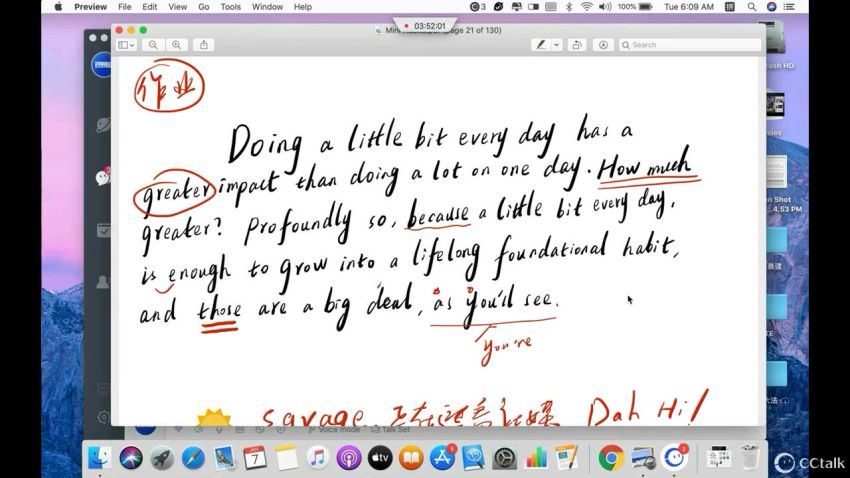 Preview File Edit View Go Tools Window Help
3 100% Tue 6:09 AM
03:52:01
(page 21 of 130)
Search
作业
Doing a little bit every day has a
greater impact than doing a lot on one day. How much
greater? Profoundly so, because a little bit every day,
is enough to grow into a lifelong foundational habit,
and those are a big deal, as you'll see.
you're
savage Dah Hi!
Voice mode Talk Set
7
CCtalk